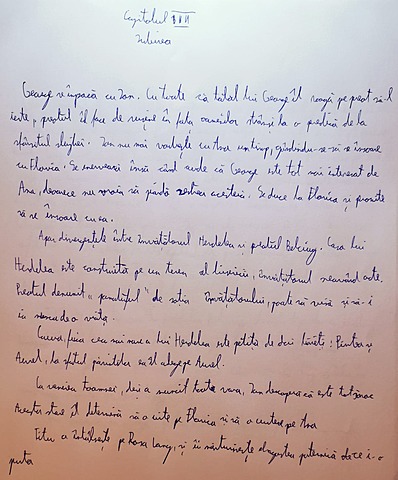 Capitolul III
Iubirea
George se împacă cu Ion. Cu toate că tatăl lui George îl roagă pe preot să-l
ierte, preotul îl face de rușine în fața oamenilor strânși la o predică de la
sfârșitul slujbei. Ion nu mai vorbește cu Ana un timp, gândindu-se să se însoare
cu Florica. Se enervează însă când aude că George este tot mai interesat de
Ana, deoarece nu vroia să piardă zestrea acesteia. Se duce la Florica și promite
să se însoare cu ea.
Apar divergențele între învățătorul Herdelea și preotul Belciug. Casa lui
Herdelea este construită pe un teren al bisericii, învățătorul neavând acte.
Preotul devenit "pământul" de soția învățătorului, poate să vină și să-i
ia munca de-o viață.
Laura, fiica cea mai mare a lui Herdelea este pețită de doi tineri: Pintea și
Aurel, la sfatul părinților ea îl alege pe Aurel.
La venirea toamnei, deși a muncit toată vara, Ion descoperă că este tot sărac
Această stare îl determină să o uite pe Florica și să o cucerească pe Ana
Titu o întâlnește pe Rosa Lang, și îi mărturisește dragostea puternică pe care i-o
purta